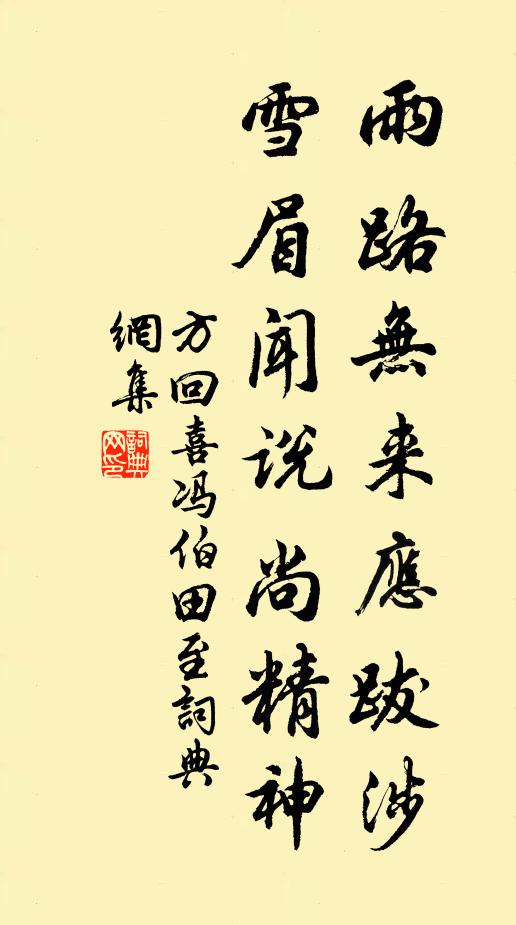 雨路無来應跋涉
雪眉聞説尚精神
方回喜冯伯田至詞典
網集
詞典網印